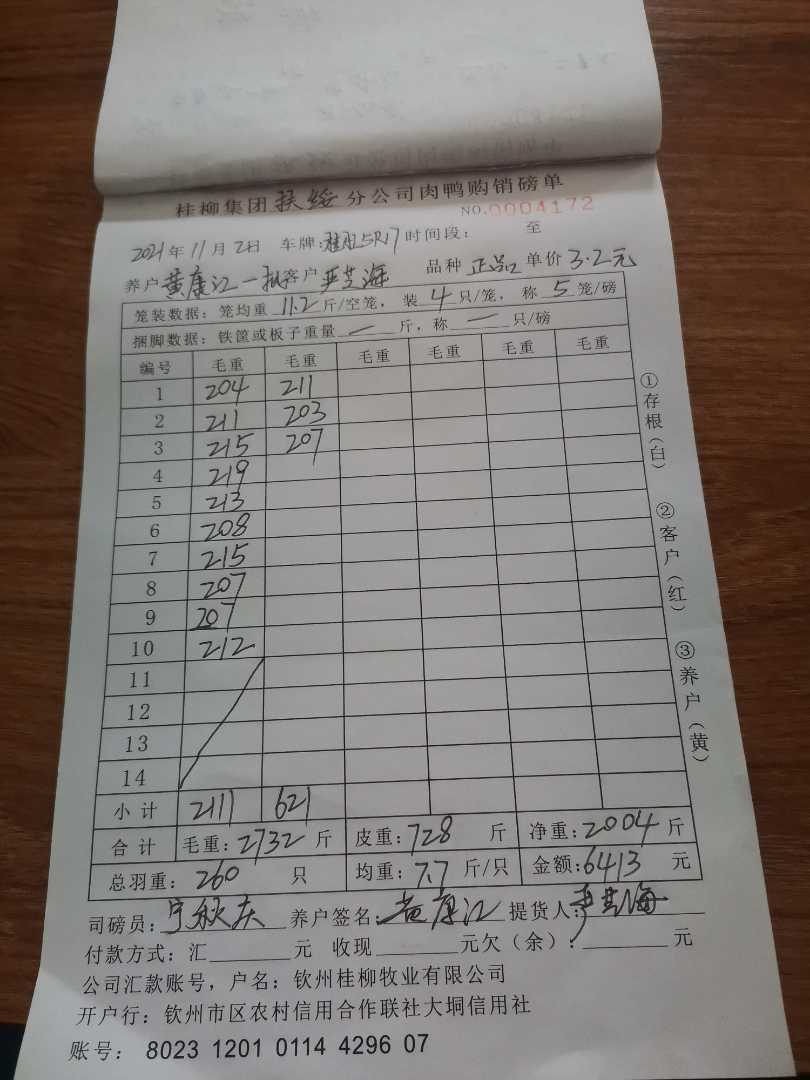 桂柳集团扶绥分公司肉鸭购销磅单
NO.0004172
2021年11月2日 车牌: 时间段: 至
养户黄康江一批客户严芝海 品种 正品 单价3.2元
笼装数据:笼均重 11.2 斤/空笼, 装 4 只/笼, 称 5 笼/磅
捆脚数据:铁筐或板子重量 — 斤,称 — 只/磅
编号 毛重 毛重 毛重 毛重 毛重 毛重
1 204 211
2 211 203
3 215 207
4 219
5 213
6 208
7 215
8 207
9 207
10 212
11
12
13
14
小计 2111 621
合计 毛重:2732 斤 皮重:728 斤 净重:2004 斤
总羽重: 260 只 均重:7.7 斤/只 金额:6413 元
司磅员:宁秋庆 养户签名:黄康江 提货人:严芝海
付款方式:汇 元 收现 元欠(余): 元
公司汇款账号,户名:钦州桂柳牧业有限公司
开户行:钦州市区农村信用合作联社大垌信用社
账号: 8023 1201 0114 4296 07
①存根(白)
②客户(红)
③养户(黄)